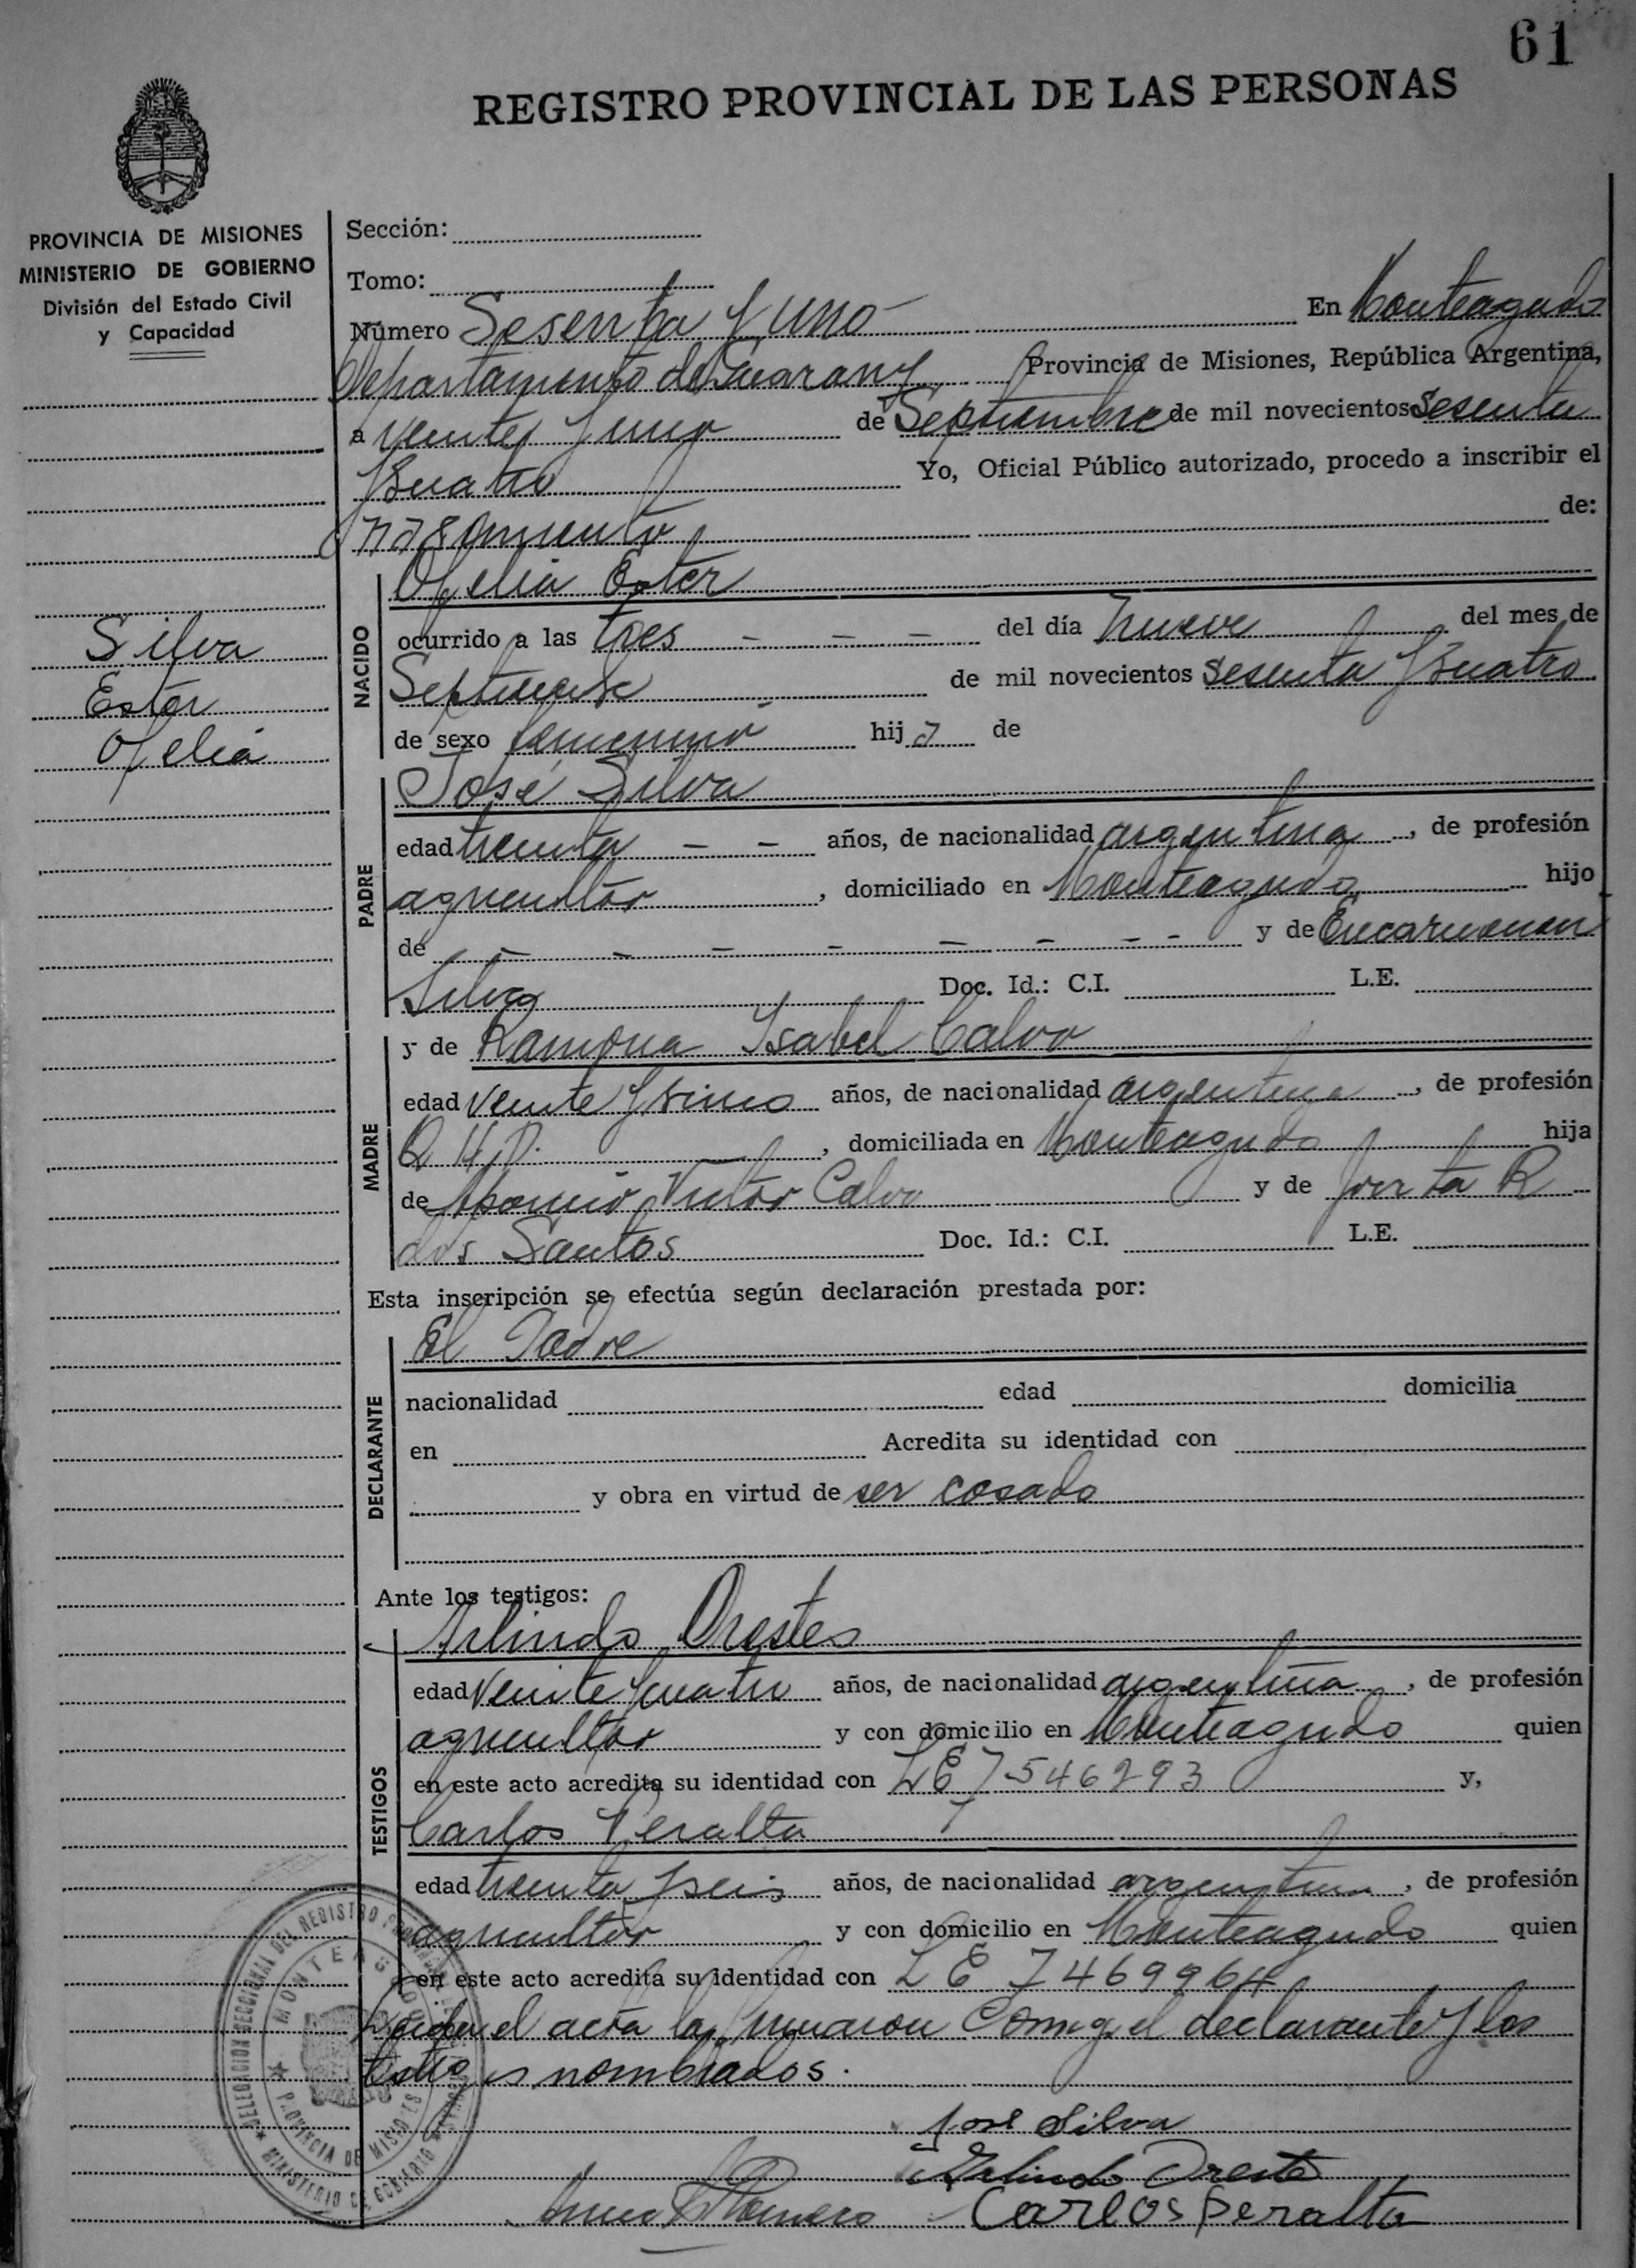 61
REGISTRO PROVINCIAL DE LAS PERSONAS
PROVINCIA DE MISIONES
MINISTERIO DE GOBIERNO
División del Estado Civil
y Capacidad
Sección:
Tomo:
Número Sesenta y uno En Monteagudo
Departamento de Guarany Provincia de Misiones, República Argentina,
a veinte y uno de Septiembre de mil novecientos sesenta
y Cuatro Yo, Oficial Público autorizado, procedo a inscribir el
nasimiento de:
Silva
Ester
Ofelia
NACIDO
Ofelia Ester
ocurrido a las tres - - - del día nueve del mes de
Septiembre de mil novecientos sesenta y Cuatro
de sexo femenino hij a de
PADRE
José Silva
edad treinta - - años, de nacionalidad argentina, de profesión
agricultor, domiciliado en Monteagudo hijo
de - - - - - - - y de Encarnacion
Silva Doc. Id.: C.I. L.E.
MADRE
y de Ramona Ysabel Calvo
edad veinte y años, de nacionalidad argentina, de profesión
Q H D., domiciliada en Monteagudo hija
de Aparicio Victor Calvo y de R
dos Santos Doc. Id.: C.I. L.E.
Esta inscripción se efectúa según declaración prestada por:
DECLARANTE
El Padre
nacionalidad edad domicilia
en Acredita su identidad con
y obra en virtud de ser casado
Ante los testigos:
TESTIGOS
Arlindo Orestes
edad veinte y cuatro años, de nacionalidad argentina, de profesión
agricultor y con domicilio en Monteagudo quien
en este acto acredita su identidad con LE 7546293 y,
Carlos Peralta
edad treinta y seis años, de nacionalidad argentina, de profesión
agricultor y con domicilio en Monteagudo quien
en este acto acredita su identidad con L E 7469964
Leida el acta la firmaron Comigo el declarante y los
testigos nombrados.
José Silva
Arlindo Oreste
Romero Carlos Peralta
DELEGACION SECCIONAL DEL REGISTRO
MONTEAGUDO
PROVINCIA DE MISIONES
MINISTERIO DE GOBIERNO